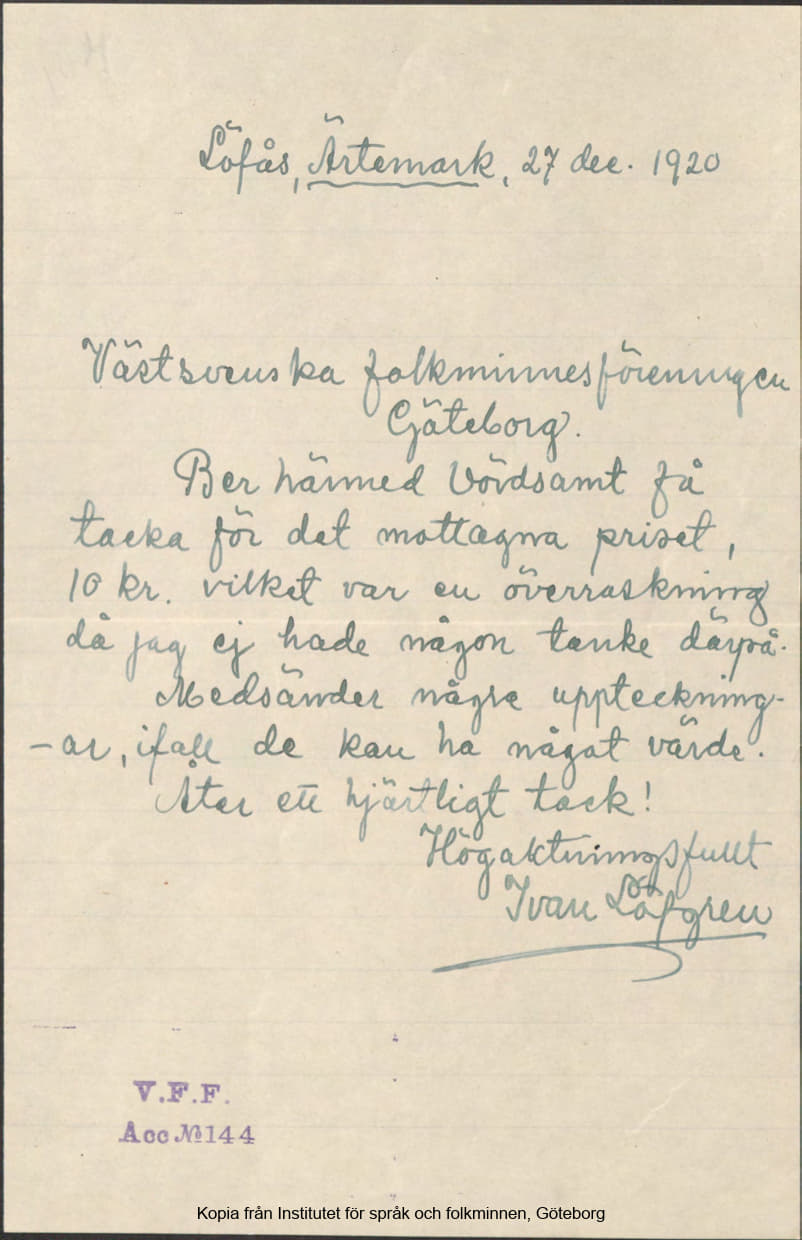 Löfås, Ärtemark, 27 dec. 1920
Västsvenska folkminnesföreningen
Göteborg.
Ber härmed vördsamt få
tacka för det mottagna priset,
10 kr. vilket var en överraskning
då jag ej hade någon tanke därpå.
Medsänder några uppteckning-
-ar, ifall de kan ha något värde.
Åter ett hjärtligt tack!
Högaktningsfullt
Ivan Löfgren
V.F.F.
Acc №144
Kopia från Institutet för språk och folkminnen, Göteborg